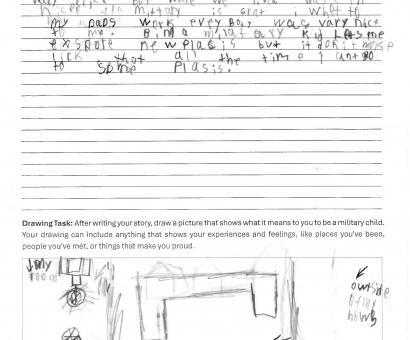 my Dads work evey Boy was vary nice
to me. Bing a milatary kid Lets me
exspore new plasis but it don't mace
lick that all the time I can't go
to some plasis.
Drawing Task: After writing your story, draw a picture that shows what it means to you to be a military child.
Your drawing can include anything that shows your experiences and feelings, like places you've been,
people you've met, or things that make you proud.
↓my
room
outside
of my